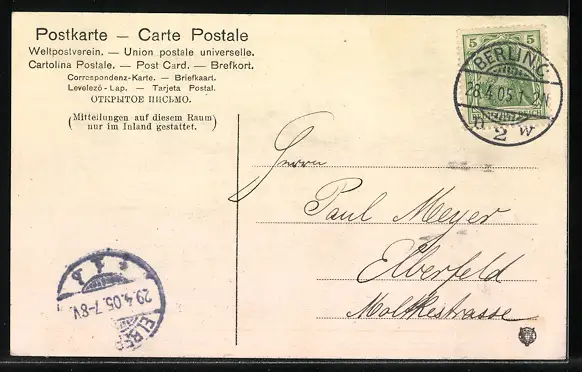 Postkarte — Carte Postale
Weltpostverein. — Union postale universelle.
Cartolina Postale. — Post Card. — Brefkort.
Correspondenz-Karte. — Briefkaart.
Levelezö-Lap. — Tarjeta Postal.
ОТКРЫТОЕ ПИСЬМО.
(Mitteilungen auf diesem Raum)
nur im Inland gestattet.
5 5
BERLIN C.
28.4.05.
2
Herrn
Paul Meyer
Elberfeld
Moltkestrasse
29.4.05.7-8V.
ELBER